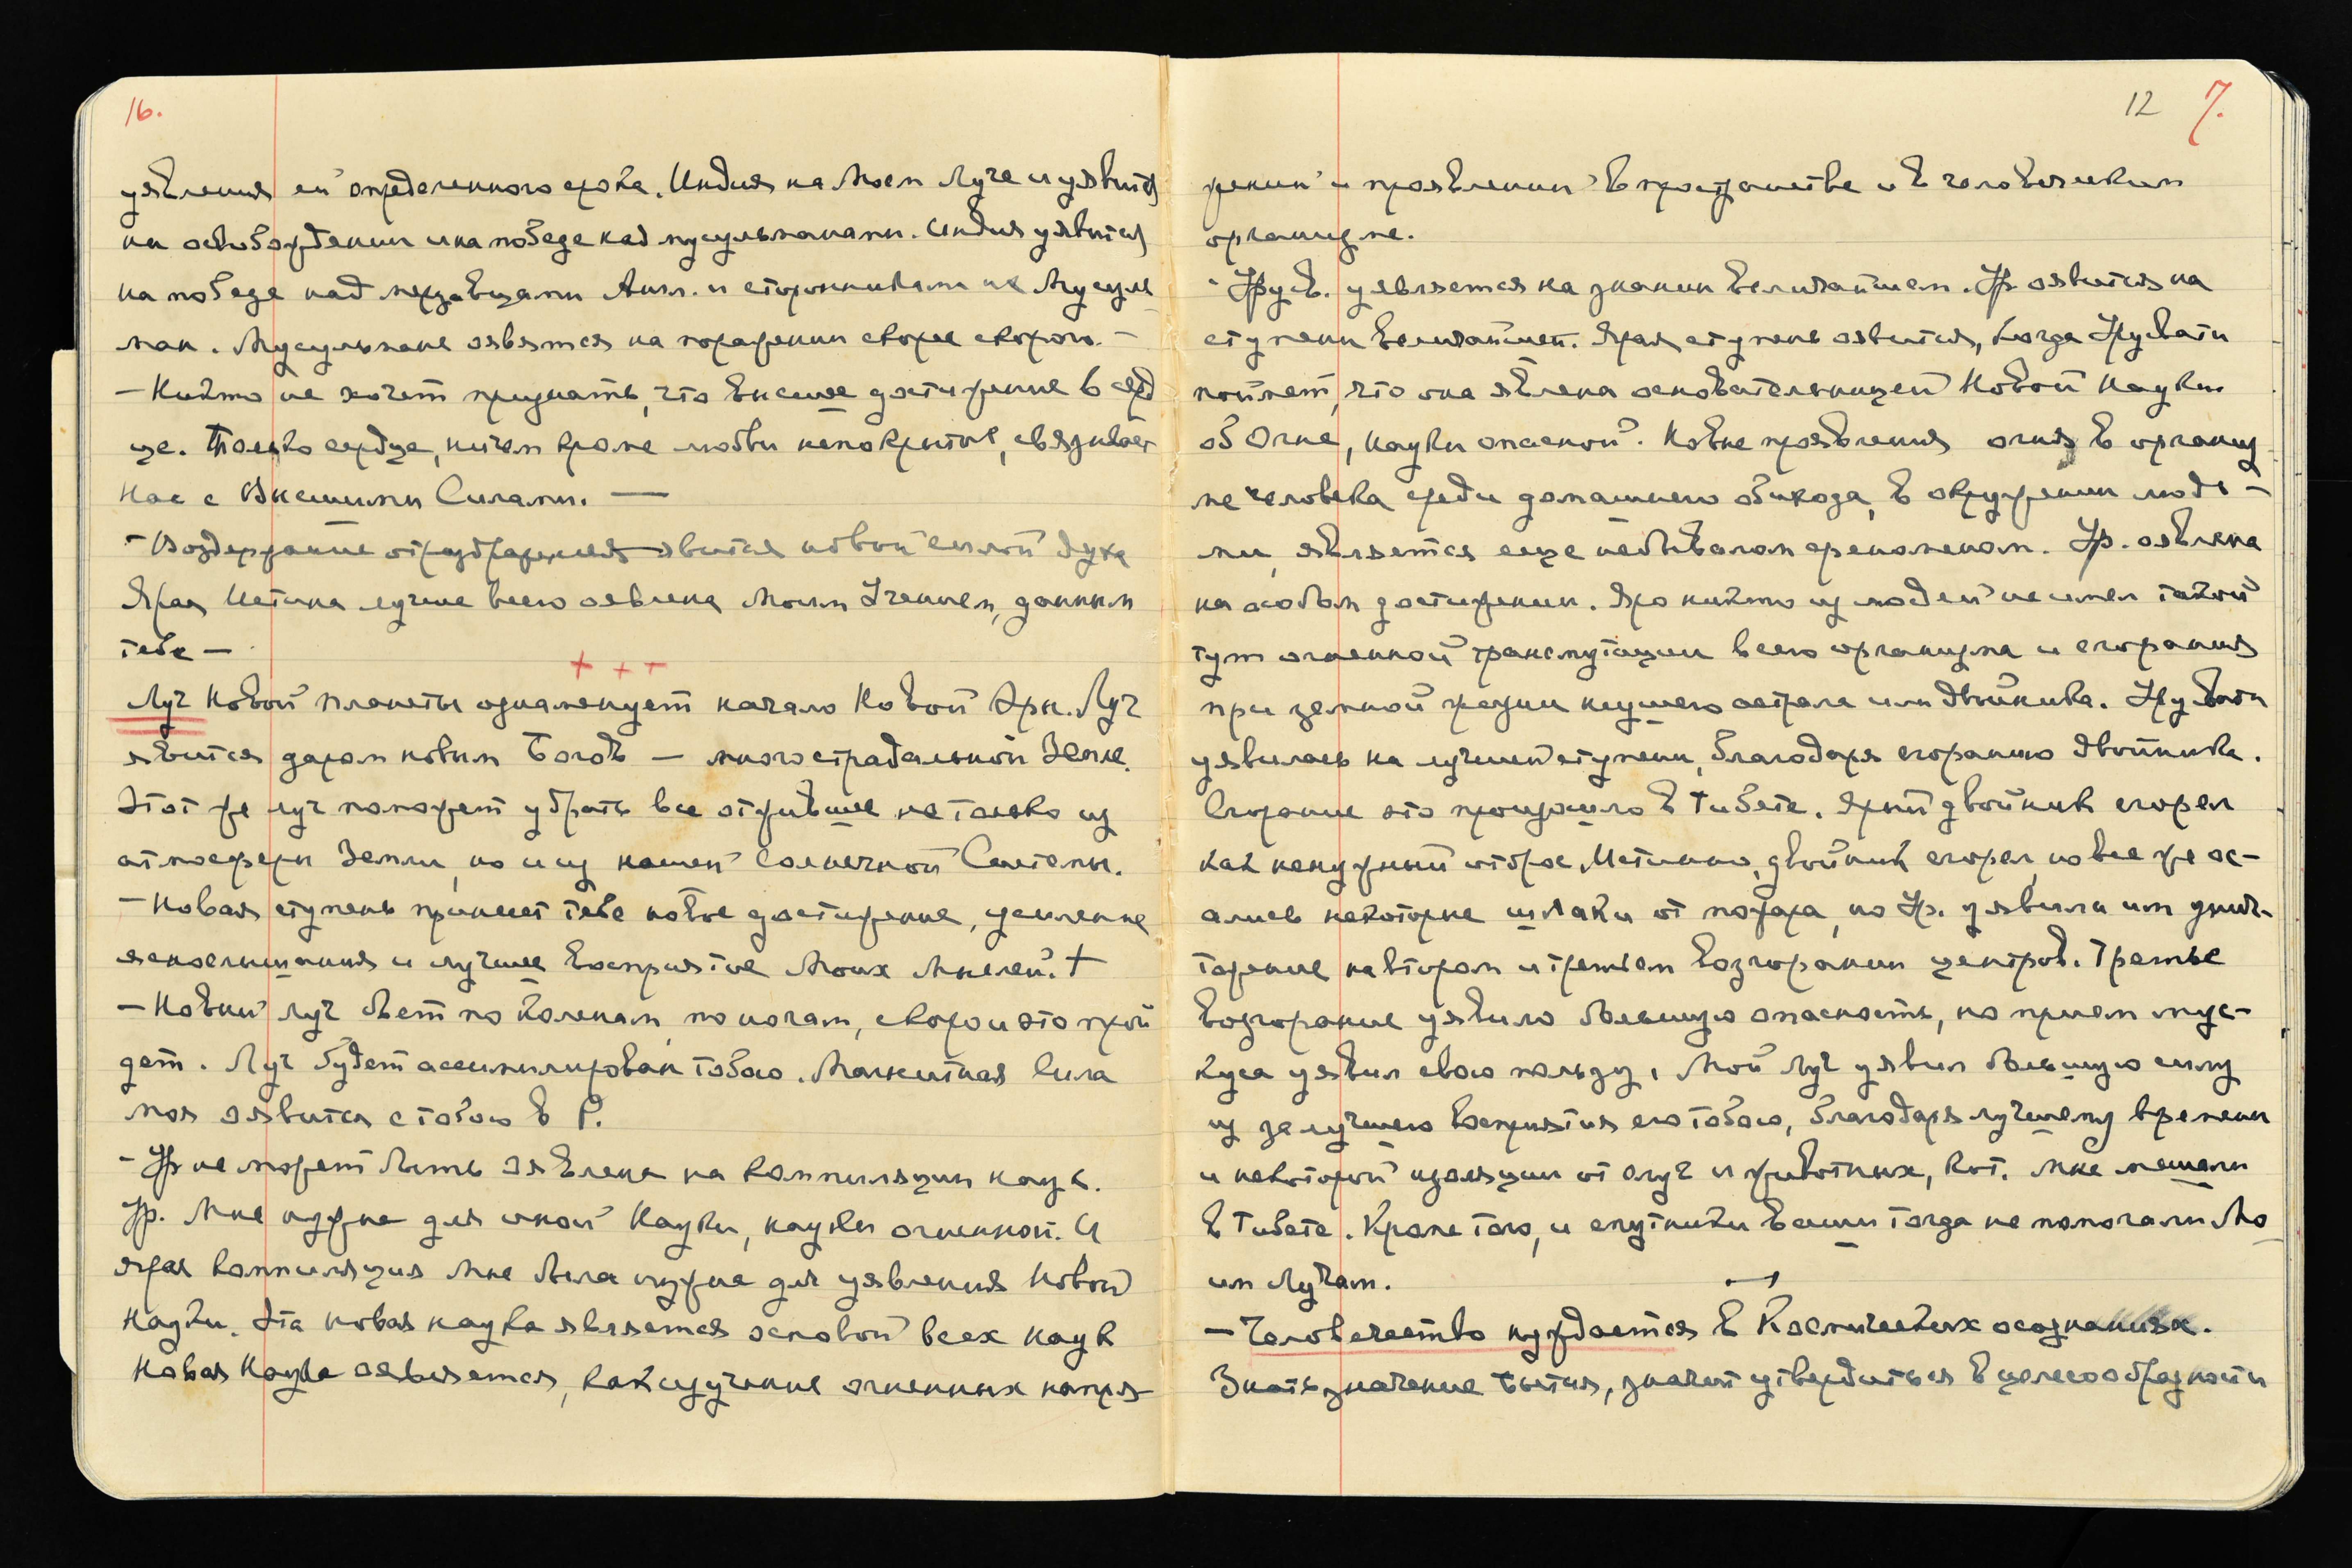 16.
уявления ей определенного срока. Индия на Моем Луче и уявится
на освобождении и на победе над мусульманами. Индия уявится
на победе над мерзавцами Англ. и сторонниками их Мусуль
ман. Мусульмане оявятся на поражении скорее скорого. —
— Никто не хочет признать, что высшее достижение в серд
це. Только сердце, ничем кроме любви непокрытое, связывает
нас с Высшими Силами. —
— Воздержание от раздражения явится новой силой духа
Ярая Истина лучше всего оявлена Моим Учением, данным
тебе —
+ + +
Луч Новой планеты ознаменует начало Новой Эры. Луч
явится даром новым Богов — многострадальной Земле.
Этот же луч поможет убрать все отжившее не только из
атмосферы Земли, но и из нашей Солнечной Системы.
— Новая ступень принесет тебе новое достижение, усиление
яснослышания и лучшее восприятие Моих Мыслей. +
— Новый луч бьет по коленам, по ногам, скоро и это прой
дет. Луч будет ассимилирован тобою. Магнитная Сила
моя оявится с тобою в Р.
— Ур не может быть оявлена на компиляции наук.
Ур. Мне нужна для иной Науки, науки огненной. И
ярая компиляция Мне была нужна для уявления Новой
Науки. Эта новая наука является основой всех наук
Новая Наука оявляется, как изучение огненных напря-
12 7.
жений и проявлений в пространстве и в человеческом
организме.
— Урусв. уявляется на знании величайшем. Ур. оявится на
ступени величайшей. Ярая ступень оявится, когда Урусвати
поймет, что она явлена основательницей Новой Науки
об Огне, науки опасной. Новые проявления огня в организ
ме человека среди домашнего обихода, в окружении людь-
ми, является еще небывалым феноменом. Ур. оявлена
на особом достижении. Яро никто из людей не имел такой
тут огненной трансмутации всего организма и сгорания
при земной жизни низшего астрала или двойника. Урусвати
уявилась на лучшей ступени, благодаря сгоранию двойника.
Сгорание это произошло в Тибете. Ярый двойник сгорел
как ненужный отброс. Истинно, двойник сгорел, но все же ос-
ались некоторые шлаки от пожара, но Ур. уявила им унич-
тожение на втором и третьем возгорании центров. Третье
возгорание уявило большую опасность, но прием мус-
куса уявил свою пользу, Мой Луч уявил большую силу
из за лучшего восприятия его тобою, благодаря лучшему времени
и некоторой изоляции от слуг и животных, кот. Мне мешали
в Тибете. Кроме того, и спутники ваши тогда не помогали Мо
им Лучам.
— Человечество нуждается в Космических осознаниях.
Знать значение бытия, значит утвердиться в целесообразности